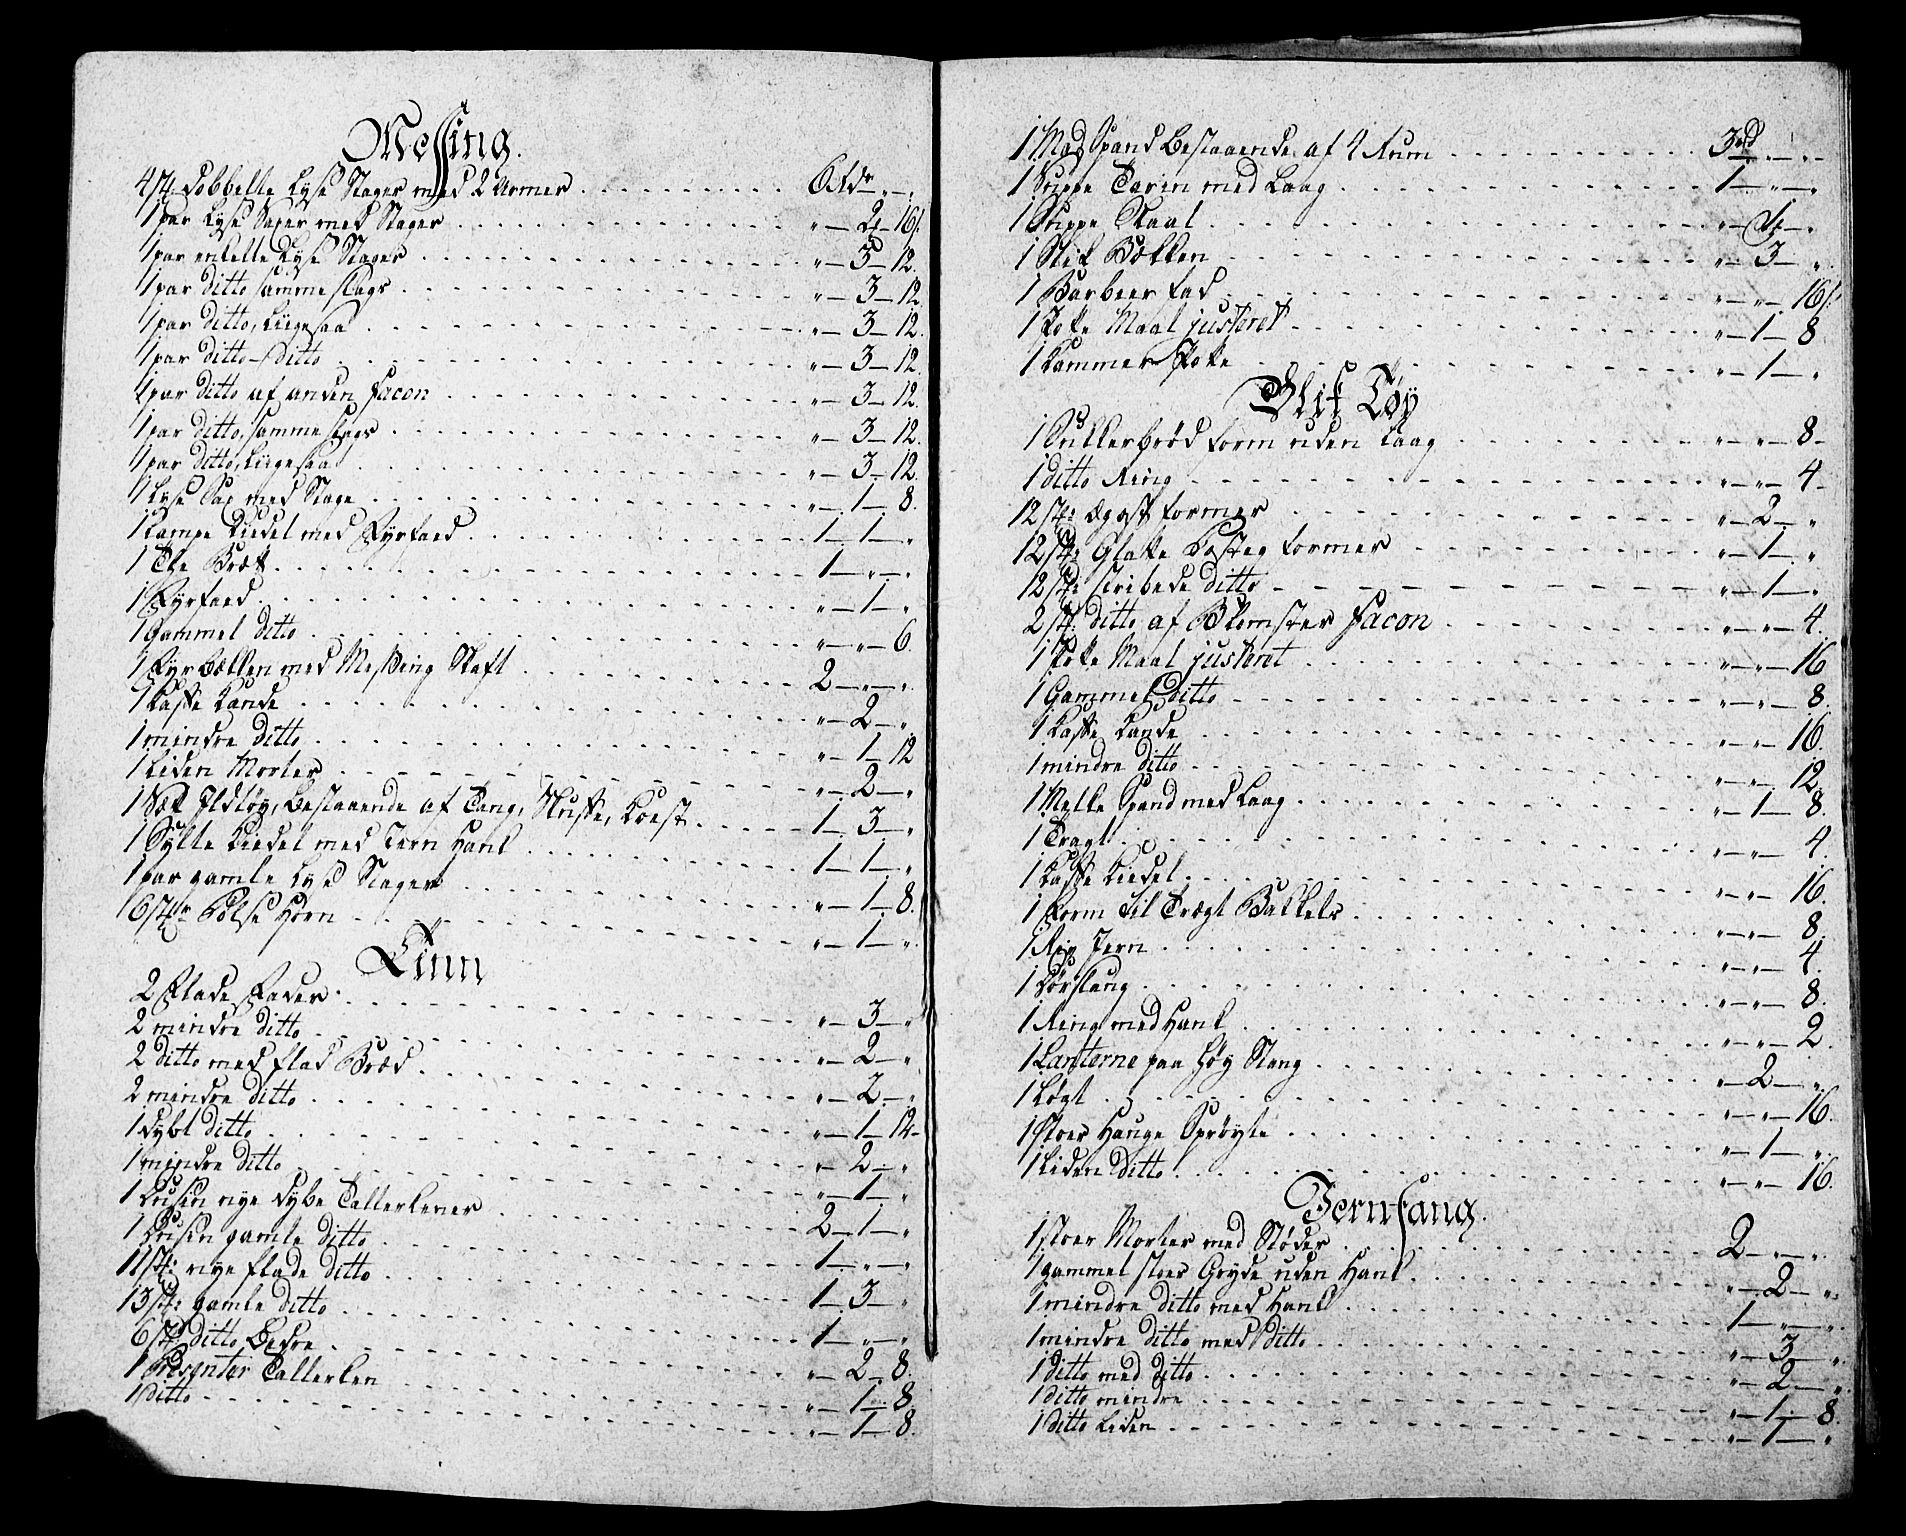 Messing.
4 st: dobbelte Lyse Stager med 2 Armer . . . 6 rdr „ — „
1 par Lyse Saxer med Stager . . . „ — 2 — 16 s.
1 par enkelte Lyse Stager . . . „ — 3 — 12.
1 par ditto samme slags . . . „ — 3 — 12.
1 par ditto, Liigesaa . . . „ — 3 — 12.
1 par ditto — ditto . . . „ — 3 — 12.
1 par ditto af anden Facon . . . „ — 3 — 12.
1 par ditto, samme slags . . . „ — 3 — 12.
1 par ditto, Liigesaa . . . „ — 3 — 12.
1 Lyse Sax med Stage . . . „ — 1 — 8.
1 Lampe Kiedel med Fyrfaed . . . 1 — 1 — „
1 The Bræt . . . 1 — „ — „
1 Fyrfaed . . . „ — 1 — „
1 Gammel ditto . . . „ — „ — 6.
1 Fyrbækken med Messing Skaft . . . 2 — „ — „
1 Kaffe Kande . . . „ — 2 — „
1 mindre ditto . . . „ — 1 — 12
1 Liden Morter . . . „ — 2 — „
1 Sæt Ildtøy, bestaaende af Tang, Skuffe, Koest . . . 1 — 3 — „
1 Sylte Kiedel med Jern Hank . . . 1 — 1 — „
1 par gamle Lyse Stager . . . „ — 1 — 8.
6 st: Pølse Horn . . . „ — 1 — „
Tinn
2 Flade Fader . . . „ — 3 — „
2 mindre ditto . . . „ — 2 — „
2 ditto med flad Bræd . . . „ — 2 — „
2 mindre ditto . . . „ — 1 — 12 —
1 dybt ditto . . . „ — 2 — „
1 mindre ditto . . . „ — 1 — „
1 Dusin nye dybe Tallerkener . . . 2 — 1 — „
1 Dusin gamle ditto . . . 1 — „ — „
11 st: nye flade ditto . . . 1 — 3 — „
13 st: gamle ditto . . . 1 — „ — „
6 st: ditto Bedre . . . „ — 2 — 8.
1 Presenter Tallerken . . . „ — 1 — 8.
1 ditto . . . „ — 1 — 8.
1 Mad Spand bestaaende af 4 Rum . . . 3 rd „ — „
1 Suppe Terin med Laag . . . 1 — „ — „
1 Suppe Skaal . . . „ — 4 — „
1 Stik Bækken . . . „ — 3 — „
1 Barbeer fad . . . „ — „ — 16 s.
1 Potte Maal justeret . . . „ — 1 — 8.
1 Kammer Potte . . . „ — 1 — „
Blik Tøy
1 Sukkerbrød form uden Laag . . . „ — „ — 8 —
1 ditto Ring . . . „ — „ — 4 —
12 st: Ægost former . . . „ — 2 — „
12 st: Glatte Postey former . . . „ — 1 — „
12 st: stribede ditto . . . „ — 1 — „
2 st: ditto af Blomster Facon . . . „ — „ — 4.
1 Potte Maal justeret . . . „ — „ — 16
1 Gammel ditto . . . „ — „ — 8.
1 Kaffe Kande . . . „ — „ — 16.
1 mindre ditto . . . „ — „ — 12.
1 Melke Spand med Laag . . . „ — 1 — 8.
1 Tragt . . . „ — „ — 4.
1 Kaffe Kiedel . . . „ — „ — 16.
1 Form til Trægt Bakkels . . . „ — „ — 8.
1 Riv Jern . . . „ — „ — 4.
1 Dørslaug . . . „ — „ — 8.
1 Ring med Hank . . . „ — „ — 2.
1 Lanterne paa høy Stang . . . „ — 2 — „
1 Løgt . . . „ — „ — 16.
1 stoer Hauge Sprøyte . . . „ — 1 — „
1 Liden ditto . . . „ — „ — 16.
Jernfang.
1 stoer Morter med Støder . . . 2 — „ — „
1 gammel stoer Gryde uden Hank . . . „ — 2 — „
1 mindre ditto med Hank . . . 1 — „ — „
1 mindre ditto med ditto . . . „ — 3 — „
1 ditto med ditto . . . „ — 2 — „
1 ditto mindre . . . „ — 1 — 8.
1 ditto Liden . . . „ — 1 — „